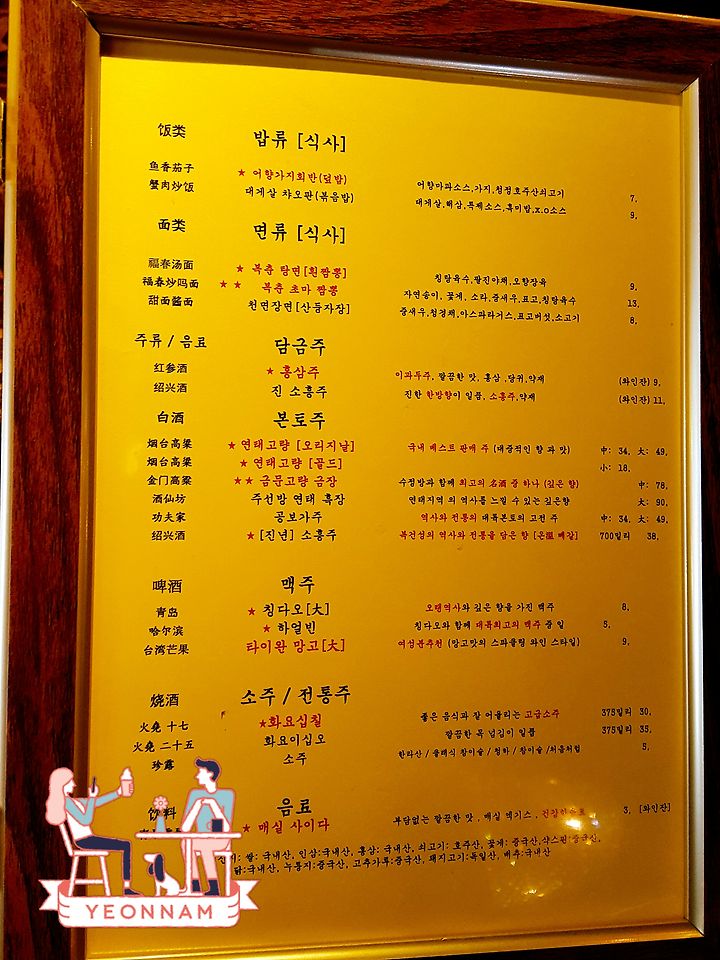 饭类 밥류 [식사]
鱼香茄子 ★ 어향가지회반(덮밥) 어향마파소스,가지,청정호주산쇠고기 7,
蟹肉炒饭 대게살 챠오판(볶음밥) 대게살,해삼,특제소스,흑미밥,X.O소스 9,
面类 면류 [식사]
福春汤面 ★ 복춘 탕면[흰짬뽕] 칭탕육수,팔진야채,오향장육 9,
福春炒吗面 ★ ★ 복춘 초마 짬뽕 자연송이, 꽃게, 소라,중새우,표고,칭탕육수 13,
甜面酱面 천면장면[산동자장] 중새우,청경채,아스파라거스,표고버섯,소고기 8,
주류 / 음료 담금주
红参酒 ★ 홍삼주 이과두주, 깔끔한 맛, 홍삼 ,당귀,약재 (와인잔) 9,
绍兴酒 진 소흥주 진한 한방향이 일품, 소흥주,약재 (와인잔) 11,
白酒 본토주
烟台高粱 ★ 연태고량 [오리지날] 국내 베스트 판매 주 (대중적인 향 과 맛) 中: 34, 大: 49,
烟台高粱 ★ 연태고량 [골드] 小: 18,
金门高粱 ★★ 금문고량 금장 수정방과 함께 최고의 名酒 중 하나 (깊은 향) 中: 78,
酒仙坊 주선방 연태 흑장 연태지역 의 역사를 느낄 수 있는 깊은향 大: 90,
功夫家 공보가주 역사와 전통의 대륙본토의 고전 주 中: 34, 大: 49,
绍兴酒 ★ [진년] 소흥주 복건성의 역사와 전통을 담은 향 [온溫 베갈] 700밀리 38,
啤酒 맥주
青岛 ★ 칭다오[大] 오랜역사와 깊은 향을 가진 맥주 8,
哈尔滨 ★ 하얼빈 칭다오와 함께 대륙최고의 맥주 중 일 5,
台湾芒果 타이완 망고[大] 여성분추천 (망고맛의 스파클링 와인 스타일) 9,
烧酒 소주 / 전통주
火堯 十七 ★화요십칠 좋은 음식과 잘 어울리는 고급소주 375밀리 30,
火堯 二十五 화요이십오 깔끔한 목 넘김이 일품 375밀리 35,
珍露 소주 한라산 / 클래식 참이슬 / 청하 / 참이슬 /처음처럼 5,
饮料 음료
★ 매실 사이다 부담없는 깔끔한 맛 , 매실 엑기스 , 3, [와인잔]
쌀: 국내산, 인삼:국내산, 홍삼: 국내산, 쇠고기: 호주산, 꽃게: 중국산,
닭:국내산, 누룽지:중국산, 고추가루:중국산, 돼지고기:독일산, 배추:국내산
YEONNAM